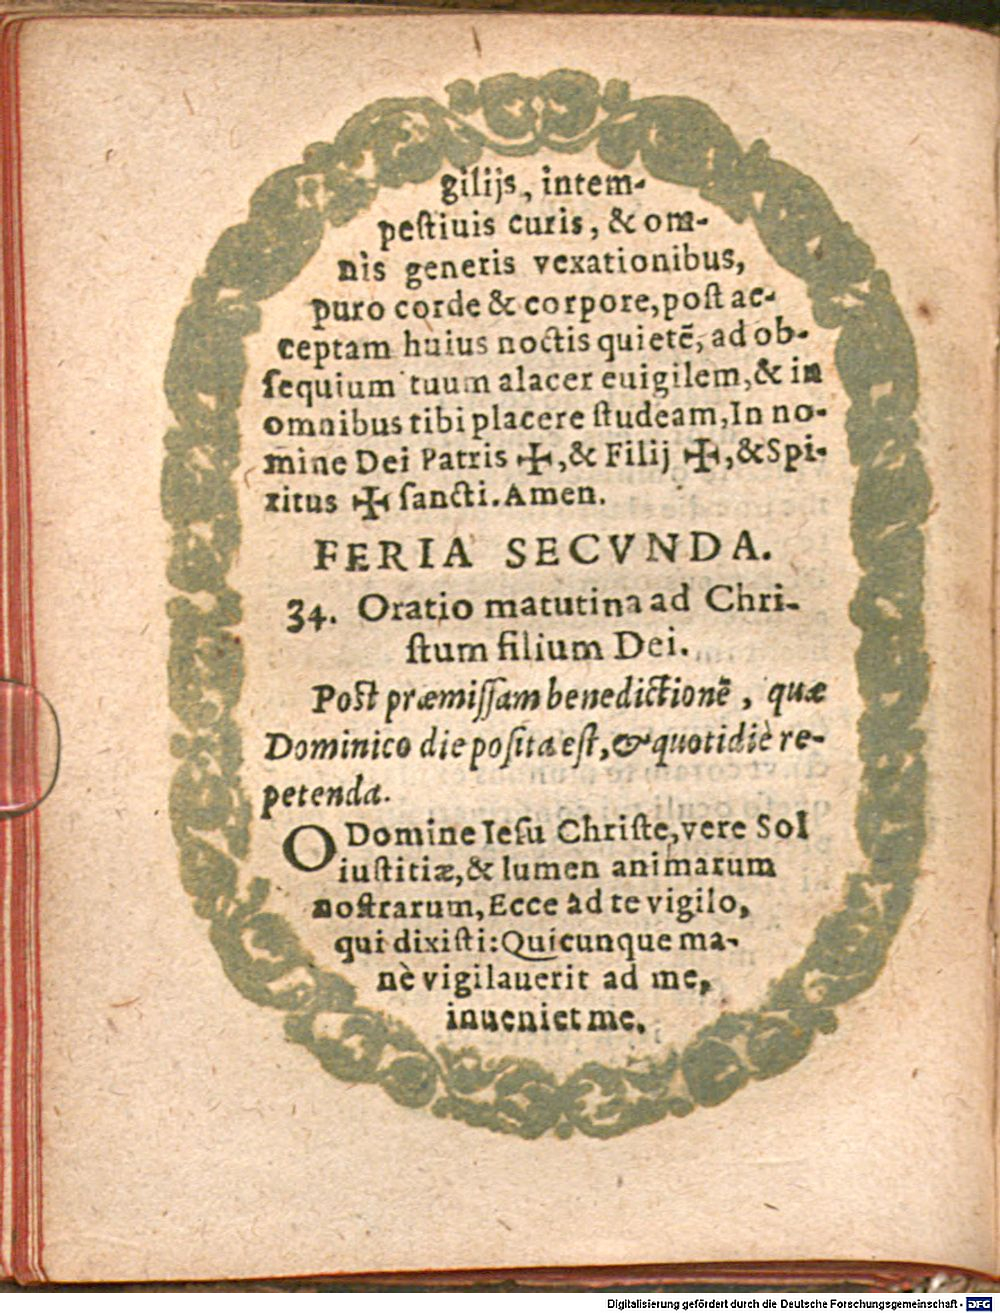 gilijs, intem-
pestiuis curis, & om-
nis generis vexationibus,
puro corde & corpore, post ac-
ceptam huius noctis quietē, ad ob-
sequium tuum alacer euigilem, & in
omnibus tibi placere studeam, In no-
mine Dei Patris ✠, & Filij ✠, & Spi-
ritus ✠ sancti. Amen.
FERIA SECVNDA.
34. Oratio matutina ad Chri-
stum filium Dei.
Post præmissam benedictionē, quæ
Dominico die posita est, & quotidiè re-
petenda.
O Domine Iesu Christe, vere Sol
iustitiæ, & lumen animarum
nostrarum, Ecce ad te vigilo,
qui dixisti: Quicunque ma-
nè vigilauerit ad me,
inueniet me.
Digitalisierung gefördert durch die Deutsche Forschungsgemeinschaft - DFG